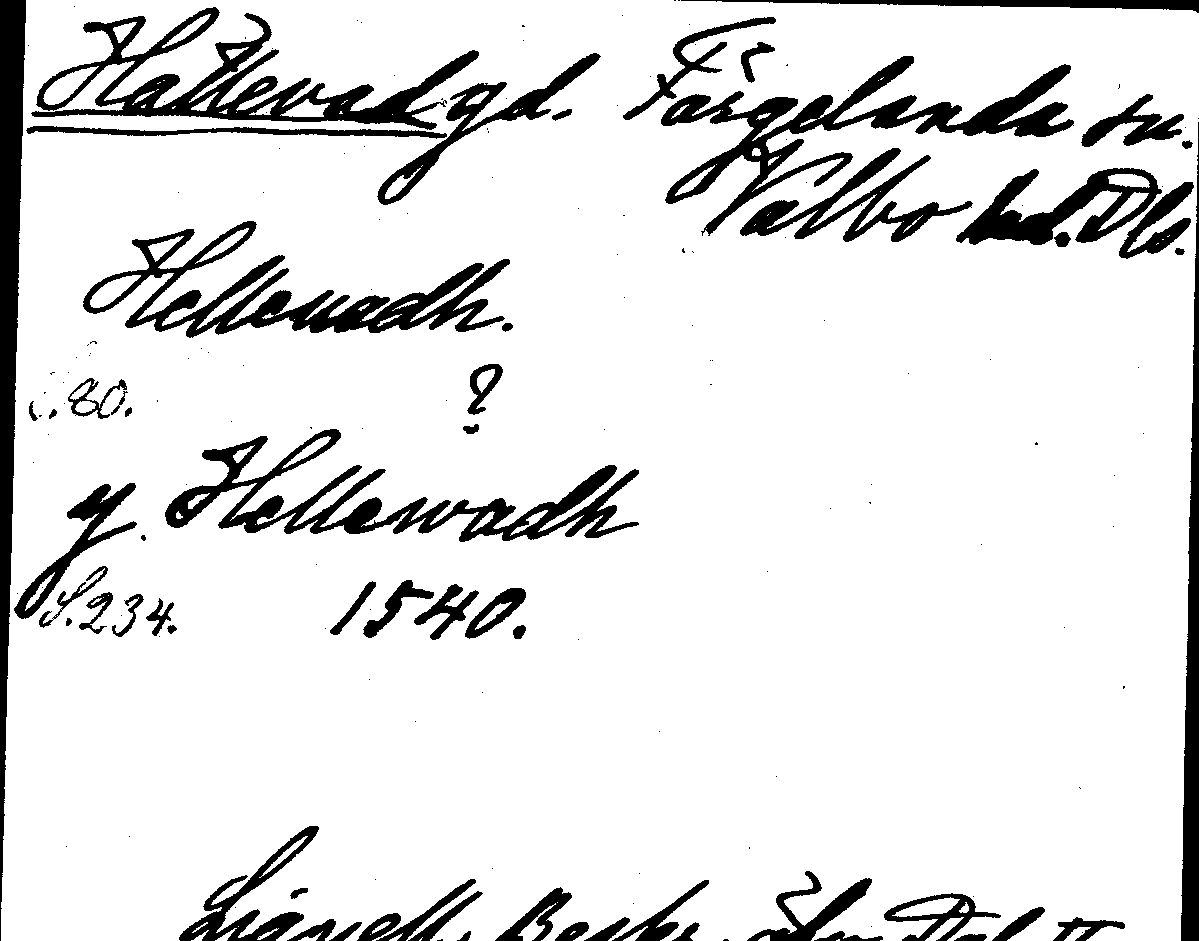 Hällevad gd. Färgelanda sn.
Valbo hd. Dls.
Hellewadh.
s. 80. ?
y. Hellewadh
S. 234. 1540.
Lignell, Beskr. över Dal II